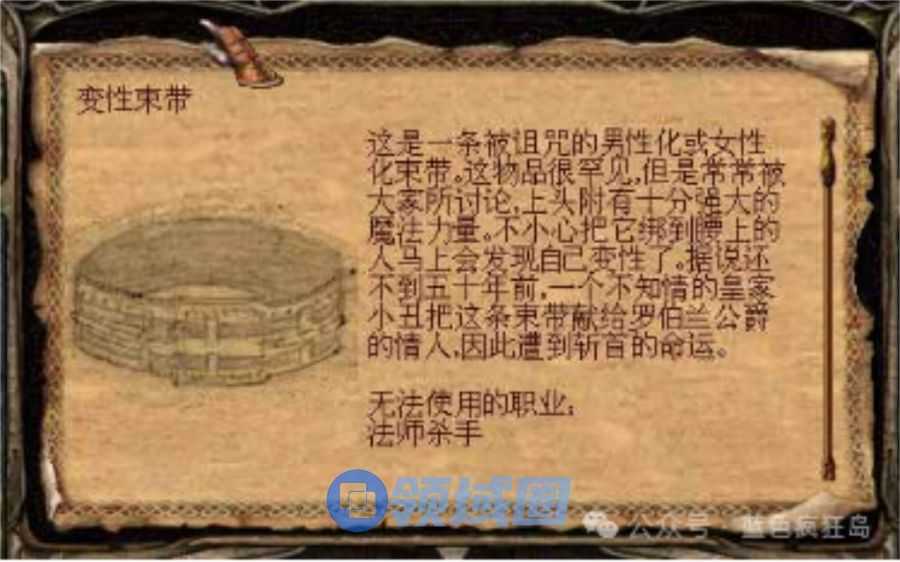 变性束带
这是一条被诅咒的男性化或女性
化束带。这物品很罕见,但是常常被
大家所讨论,上头附有十分强大的
魔法力量。不小心把它绑到腰上的
人马上会发现自己变性了。据说还
不到五十年前,一个不知情的皇家
小丑把这条束带献给罗伯兰公爵
的情人,因此遭到斩首的命运。
无法使用的职业:
法师杀手
领域圈
公众号·蓝色疯狂岛